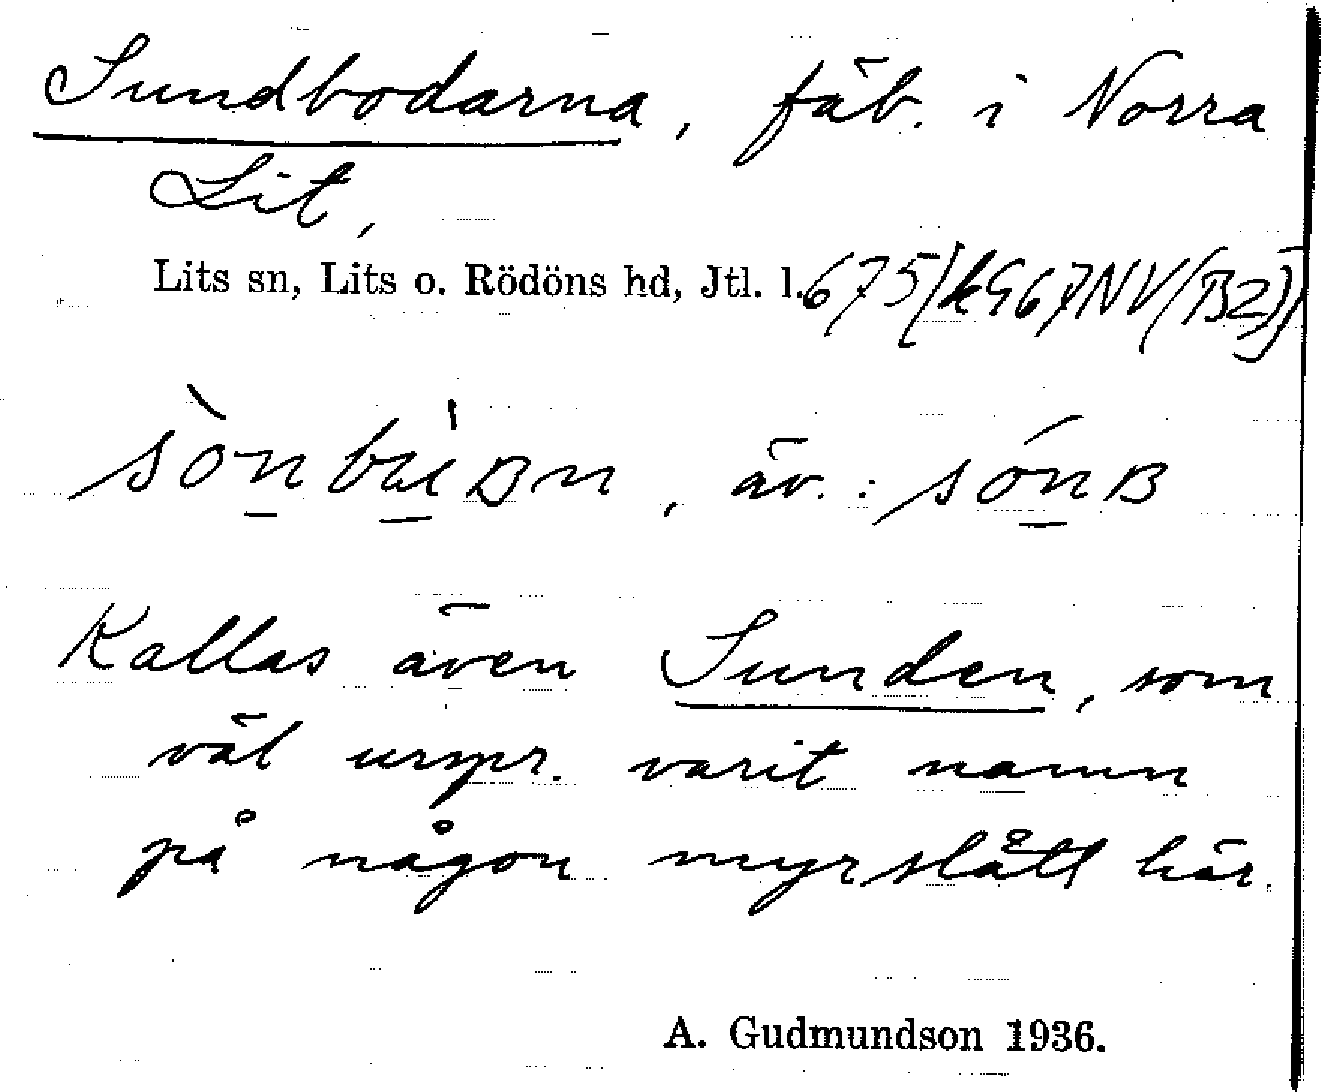 Sundbodarna, fäb. i Norra
Lit,
Lits sn, Lits o. Rödöns hd, Jtl. l.
äv.:
Kallas även Sunden, som
väl urspr. varit namn
på någon myrslått här.
A. Gudmundson 1936.